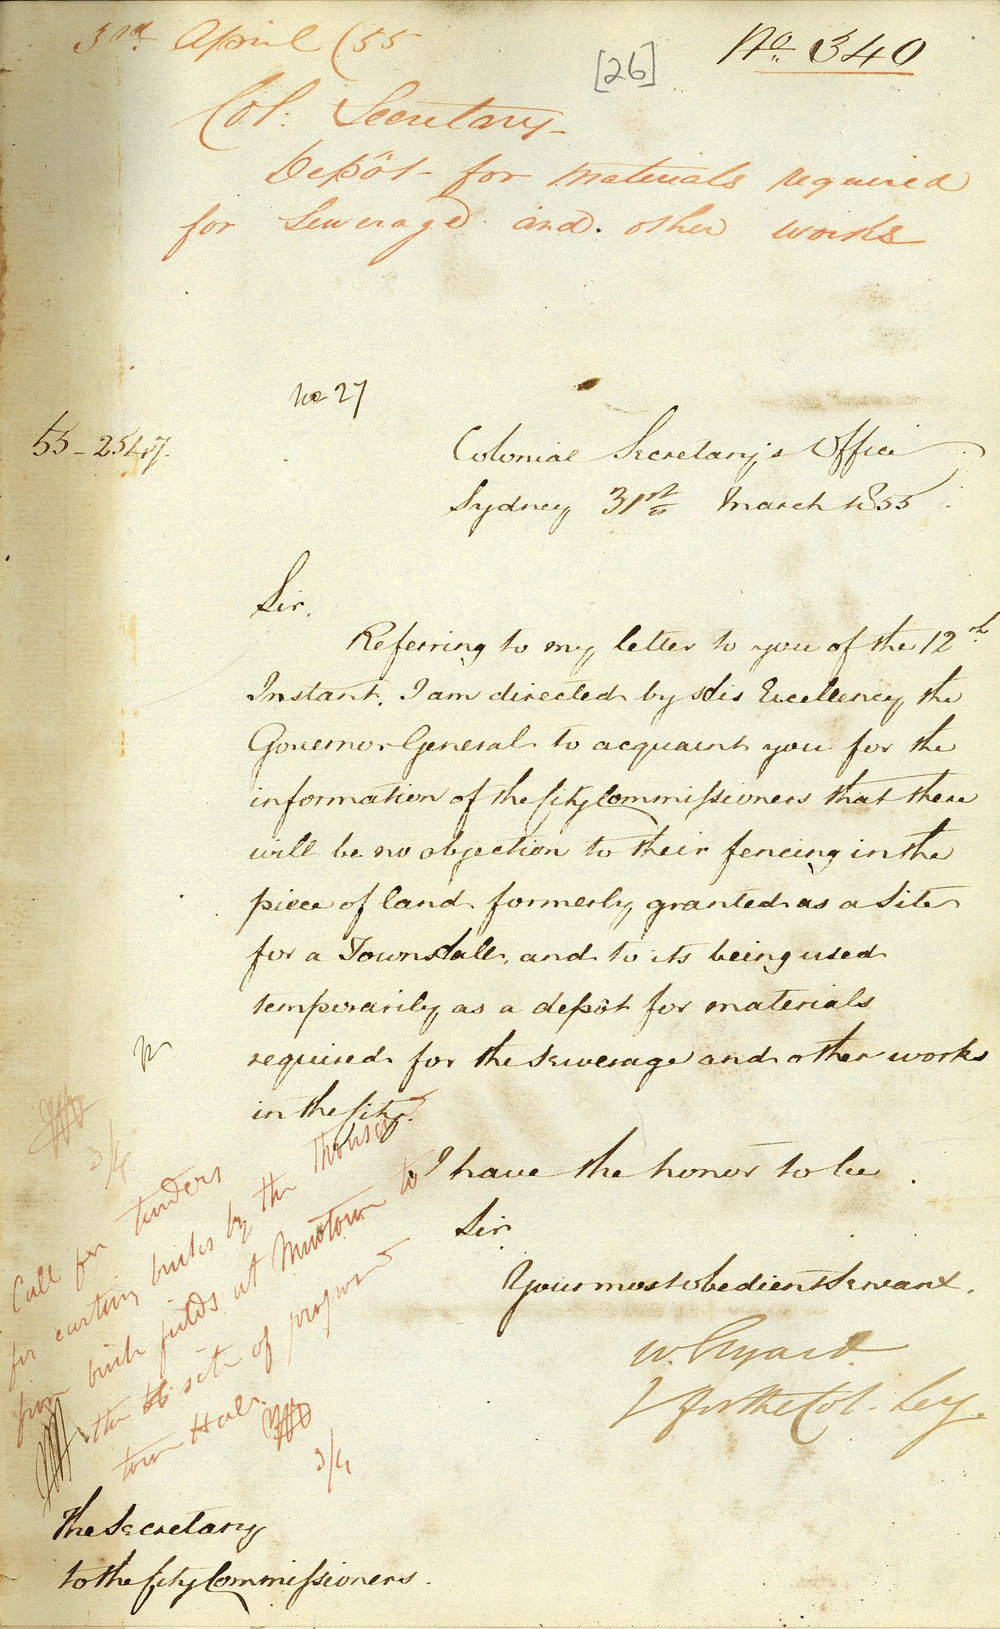 3rd April /55
[26]
No. 340
Col: Secretary -
Depôt for materials required
for Sewerage and other works
No 27
55-2547.
Colonial Secretary's Office
Sydney 31st March 1855
Sir,
Referring to my letter to you of the 12th
Instant, I am directed by His Excellency the
Governor General to acquaint you for the
information of the City Commissioners that there
will be no objection to their fencing in the
piece of land formerly granted as a Site
for a Town Hall, and to its being used
temporarily as a depôt for materials
required for the Sewerage and other works
in the City.
I have the honor to be
Sir
Your most obedient Servant.
W. Elyard
for the Col. Secy.
3/4
Call for tenders
for carting bricks by the thousand
from brick fields at Newtown to
the site of proposed
town Hall.
3/4
The Secretary
to the City Commissioners.